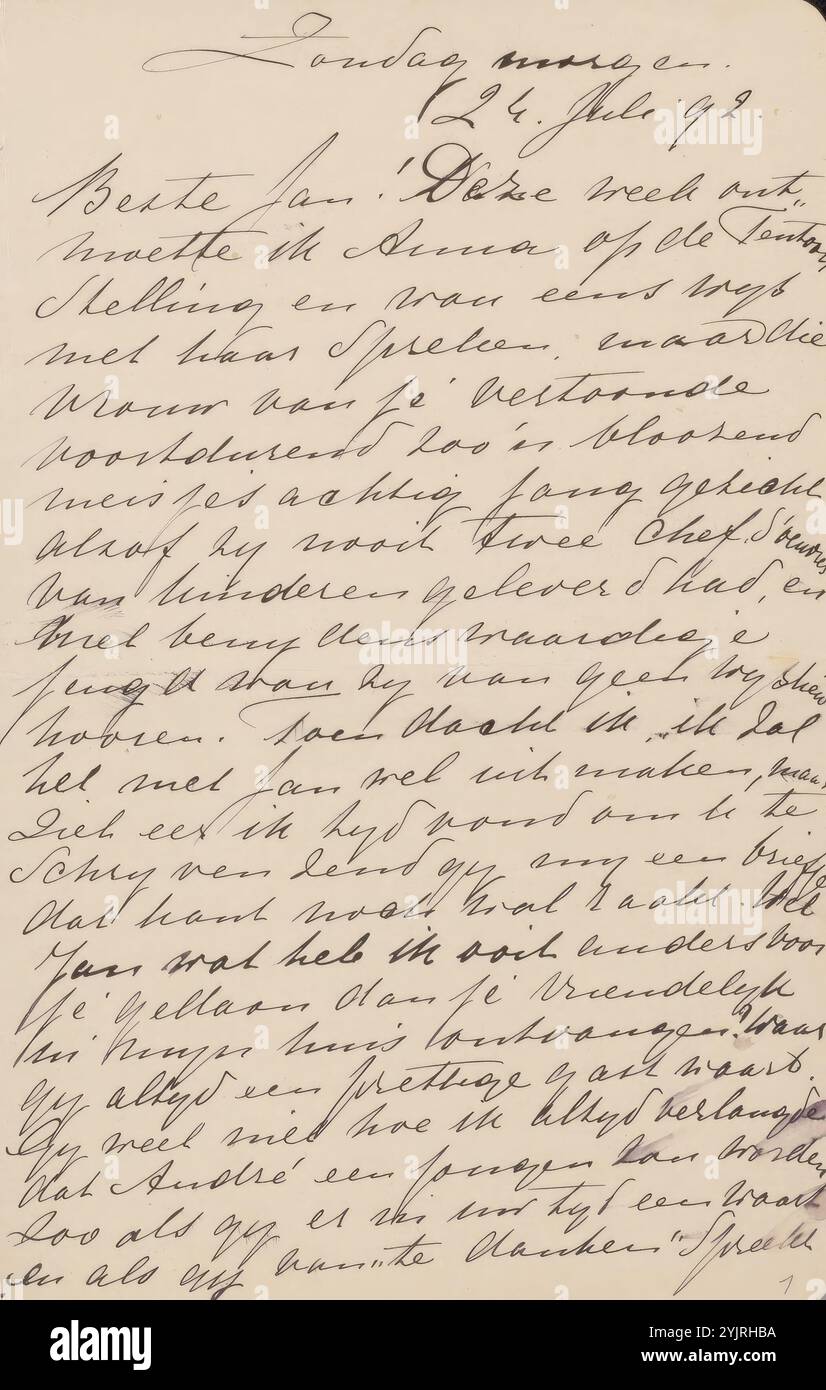 Zondag morgen.
24. Juli 92.
Beste Jan! Deze week ont„
moette ik Anna op de Tentoon
Stelling en wou eens wys
met haar spreken, maar die
vrouw van je vertoonde
voortdurend zoo'n bloozend
meisjesachtig jong gezicht
alsof zy nooit twee chef d'oeuvres
van kinderen geleverd had, en
met benydenswaardige
jeugd wou zy van geen wysheid
hooren. Toen dacht ik, „ik zal
het met Jan wel uitmaken, maar
Ziet eer ik tyd vond om te
Schryven zend gy my een briefje
dat kant noch wal raakt. Wel
Jan wat heb ik ooit anders voor
je gedaan dan je vriendelyk
in myn huis ontvangen? Waar
gy altyd een prettige gast waart.
Gy weet niet hoe ik altyd verlangde
dat André een jongen zou worden
zoo als gy er in uw tyd een waart
en als gy van „te danken" Spreekt
1
alamy
Image ID: 2YJRHBA
www.alamy.com